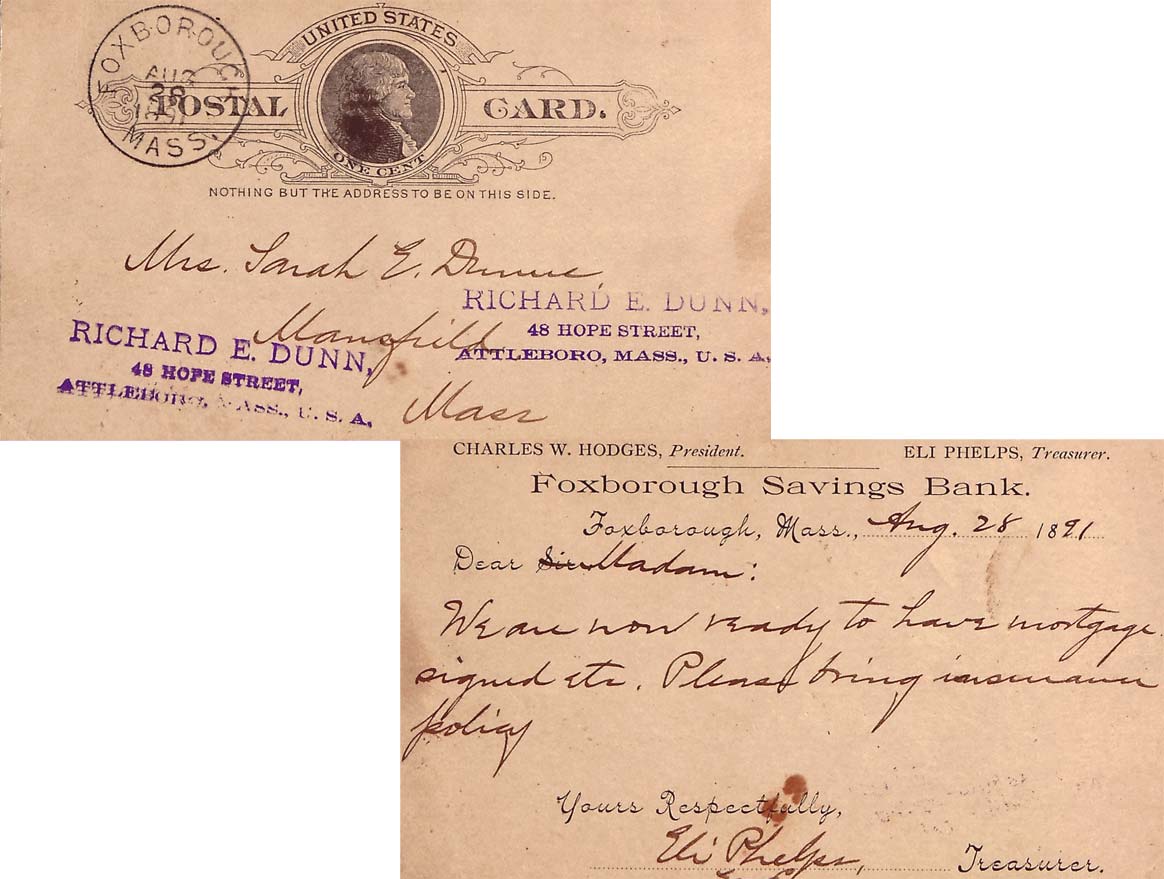 FOXBOROUGH
AUG
28
1891
MASS.
UNITED STATES
POSTAL CARD.
ONE CENT
NOTHING BUT THE ADDRESS TO BE ON THIS SIDE.
Mrs. Sarah E. Dunne,
RICHARD E. DUNN,
48 HOPE STREET,
ATTLEBORO, MASS., U. S. A.
Mansfield
RICHARD E. DUNN,
48 HOPE STREET,
ATTLEBORO, MASS., U. S. A.
Mass
CHARLES W. HODGES, President. ELI PHELPS, Treasurer.
Foxborough Savings Bank.
Foxborough, Mass., Aug. 28 1891
Dear Sir Madam:
We are now ready to have mortgage
signed etc. Please bring insurance
policy
Yours Respectfully,
Eli Phelps, Treasurer.